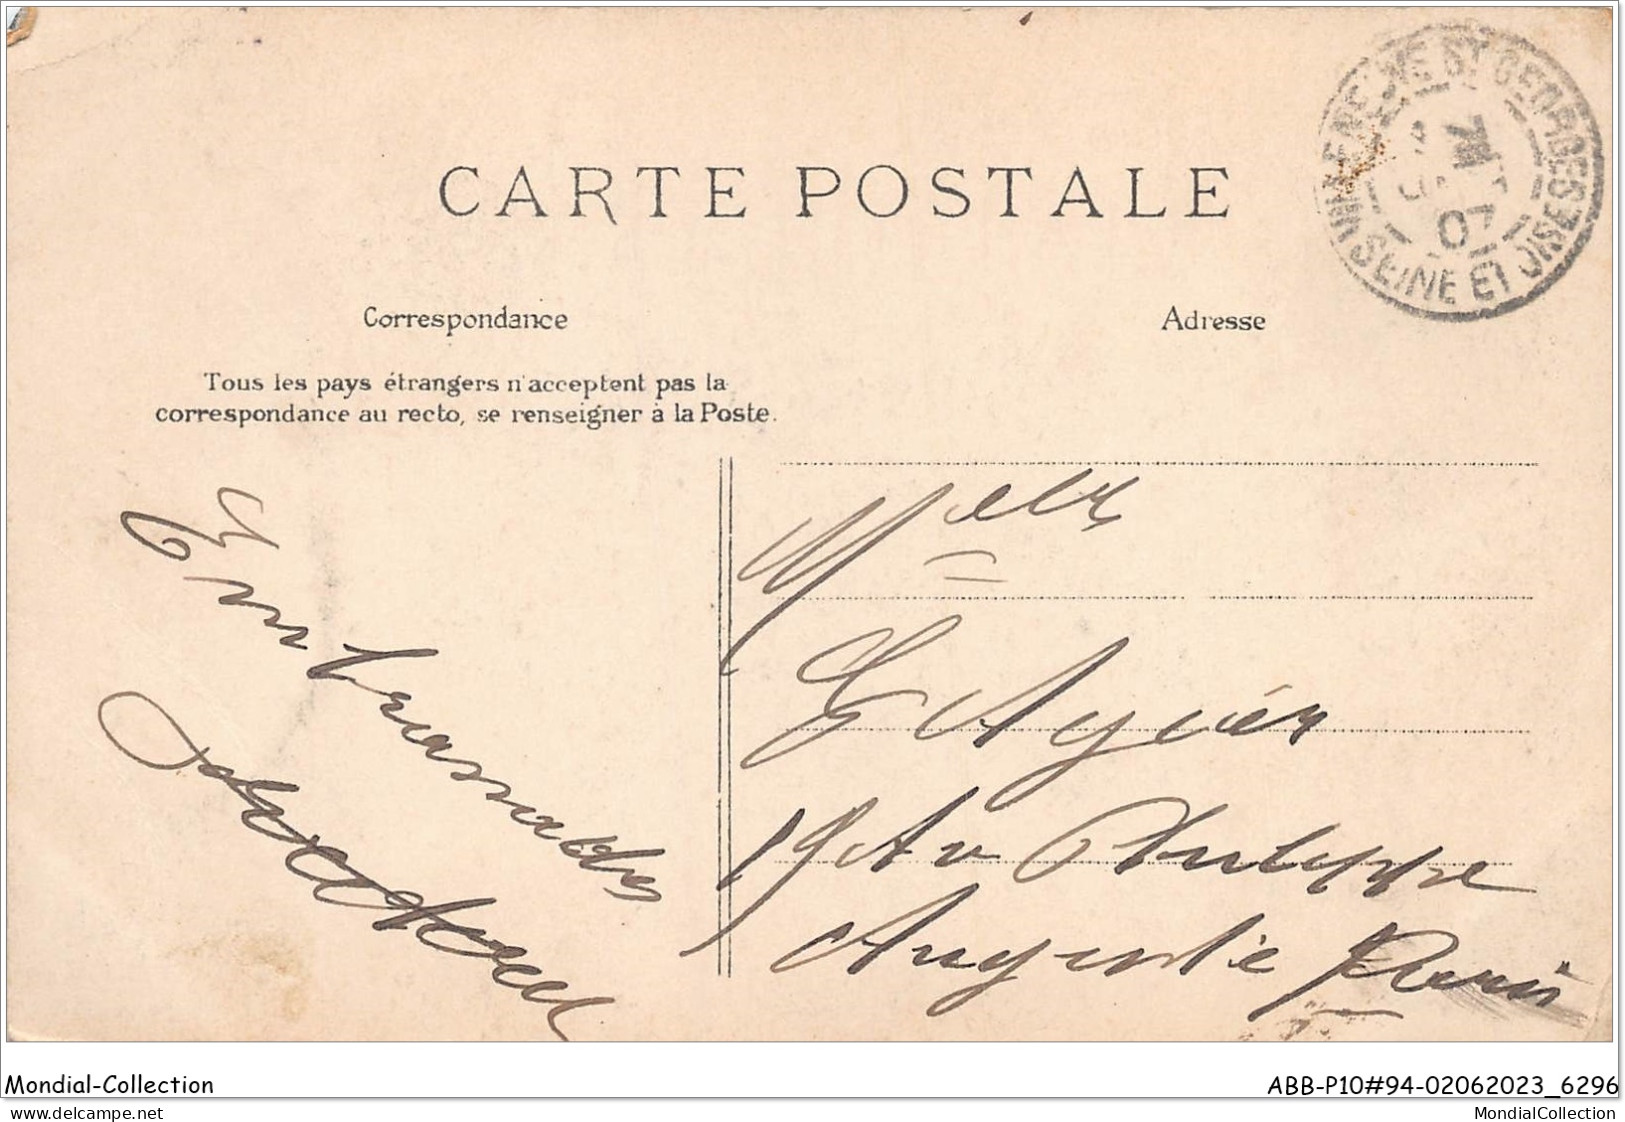 CARTE POSTALE
VILLENEUVE ST GEORGES
SEINE ET OISE
07
Correspondance
Adresse
Tous les pays étrangers n'acceptent pas la
correspondance au recto, se renseigner à la Poste.
Embrassades
Melle
G Aguier
19 Av Philippe
Auguste Paris
Mondial-Collection
ABB-P10#94-02062023_6296
www.delcampe.net
MondialCollection